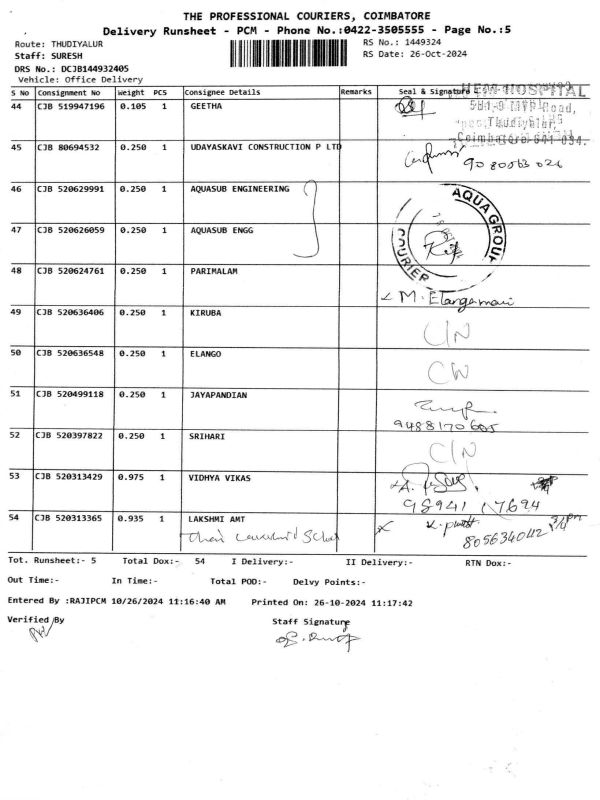 THE PROFESSIONAL COURIERS, COIMBATORE
Delivery Runsheet - PCM - Phone No.:0422-3505555 - Page No.:5
Route: THUDIYALUR
RS No.: 1449324
Staff: SURESH
RS Date: 26-Oct-2024
DRS No.: DCJB144932405
Vehicle: Office Delivery
S No Consignment No Weight PCS Consignee Details Remarks Seal & Signature
HOSPITAL
44 CJB 519947196 0.105 1 GEETHA
Road,
Thudiyalur,
Coimbatore-641 034.
45 CJB 80694532 0.250 1 UDAYASKAVI CONSTRUCTION P LTD
9080563026
46 CJB 520629991 0.250 1 AQUASUB ENGINEERING
AQUA GROUP
COURIER
47 CJB 520626059 0.250 1 AQUASUB ENGG
48 CJB 520624761 0.250 1 PARIMALAM
M. Elangamani
49 CJB 520636406 0.250 1 KIRUBA
C/N
50 CJB 520636548 0.250 1 ELANGO
51 CJB 520499118 0.250 1 JAYAPANDIAN
9488170605
52 CJB 520397822 0.250 1 SRIHARI
C/N
53 CJB 520313429 0.975 1 VIDHYA VIKAS
98941 17694
54 CJB 520313365 0.935 1 LAKSHMI AMT
8056340112
Tot. Runsheet:- 5 Total Dox:- 54 I Delivery:- II Delivery:- RTN Dox:-
Out Time:- In Time:- Total POD:- Delvy Points:-
Entered By :RAJIPCM 10/26/2024 11:16:40 AM Printed On: 26-10-2024 11:17:42
Verified By Staff Signature